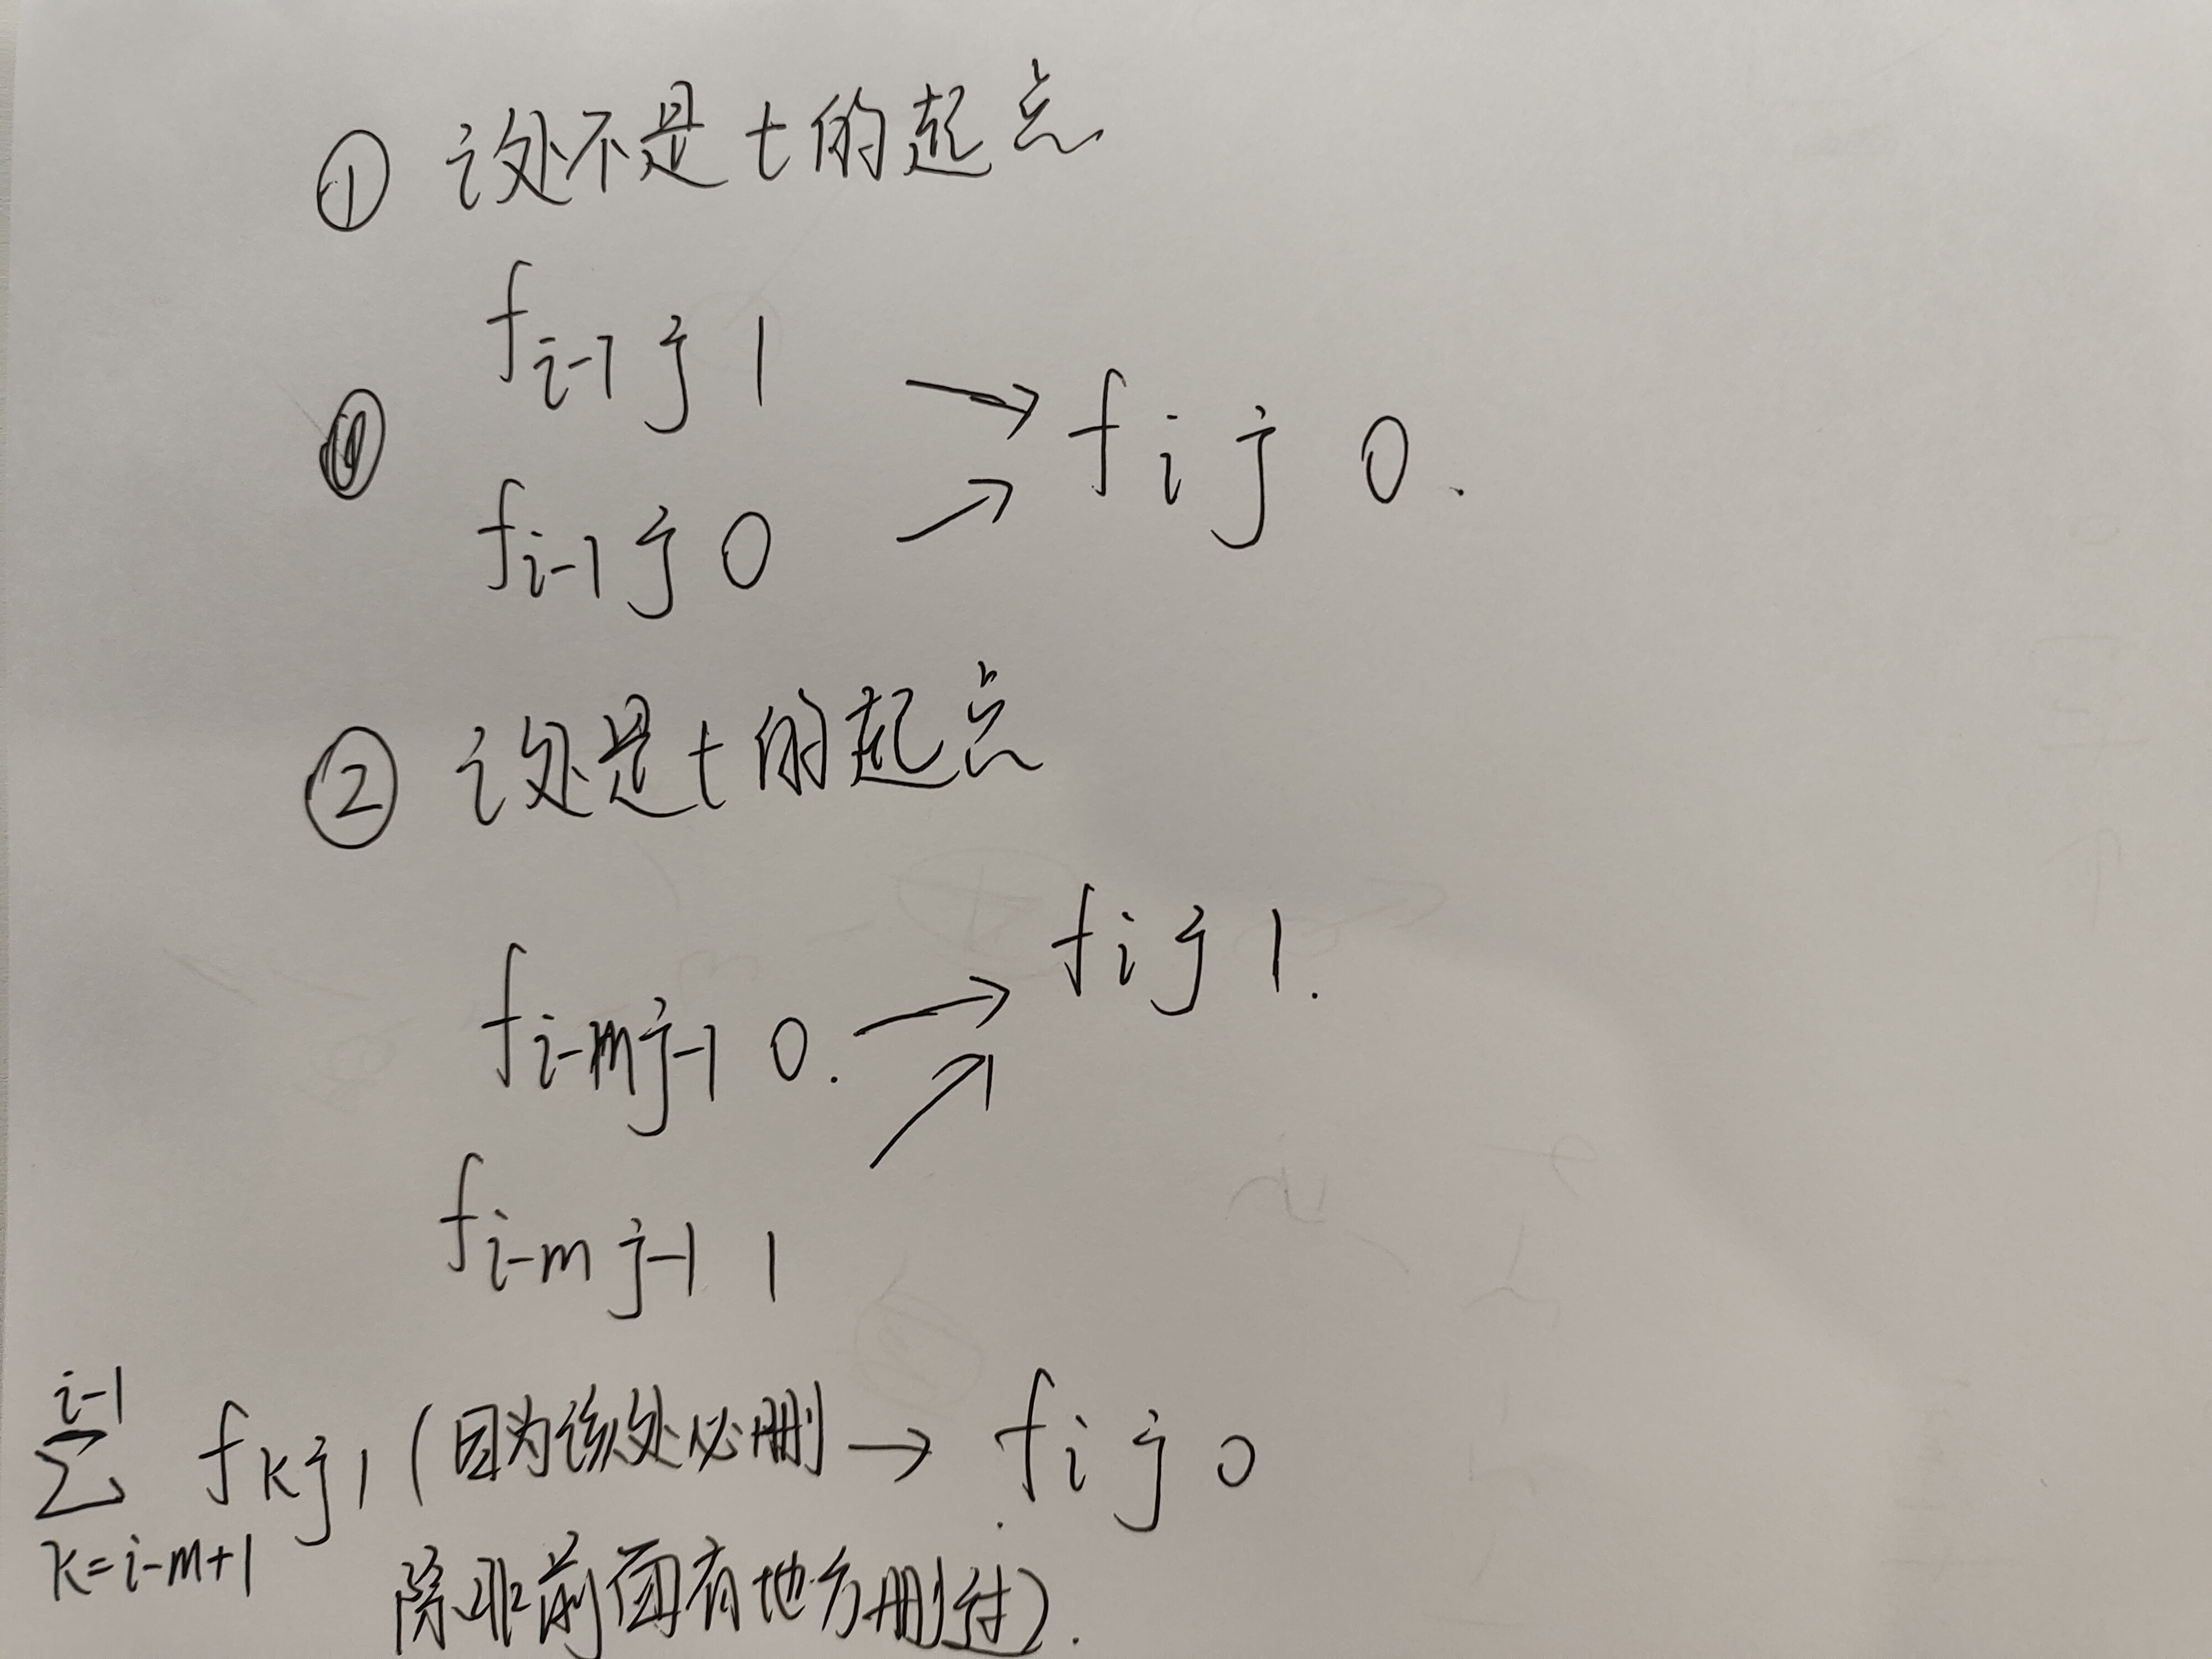 ① i处不是t的起点
f i-1 j 1
→ f i j 0.
f i-1 j 0 →
② i处是t的起点
f i-m j-1 0. → f i j 1.
f i-m j-1 1 →
∑ k=i-m+1 i-1 f k j 1 (因为该处必删 → f i j 0
除非前面有地方删过).